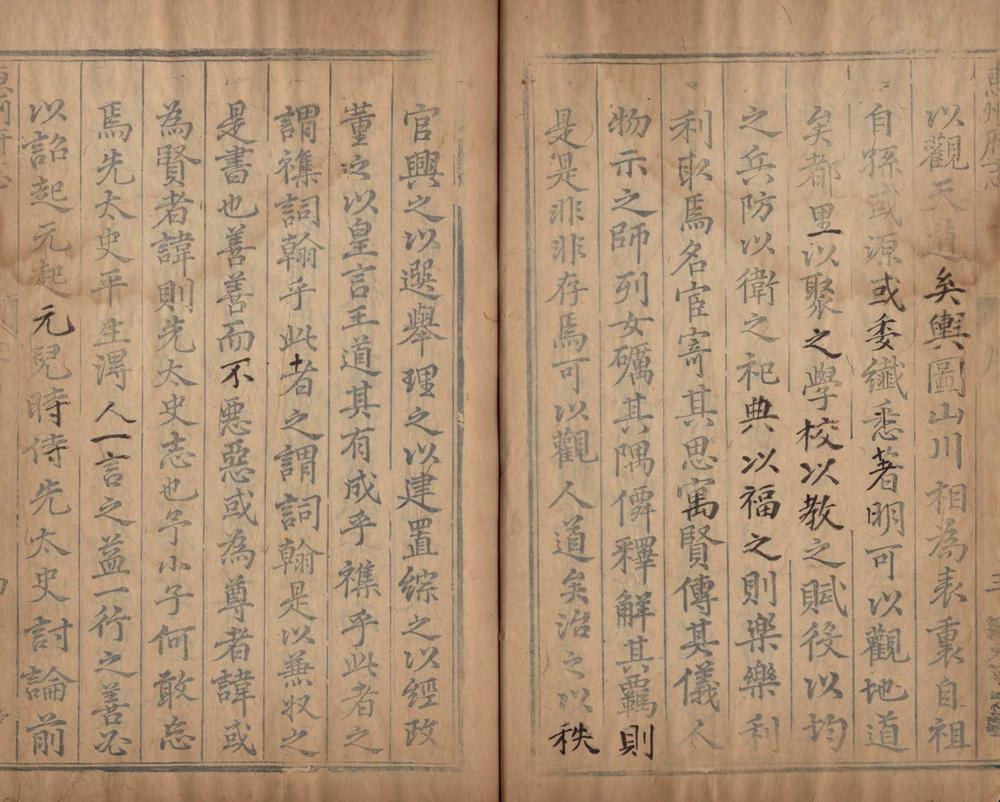 以觀天道矣輿圖山川相為表裏自祖
自孫或源或委纖悉著明可以觀地道
矣都里以聚之學校以教之賦役以均
之兵防以衛之祀典以福之則樂樂利
利取焉名宦寄其思寓賢傳其儀人
物示之師列女礪其隅僊釋解其羈則
是是非非存焉可以觀人道矣治之以秩
官興之以選舉理之以建置綜之以經政
董之以皇言王道其有成乎襍乎此者之
謂襍詞翰乎此者之謂詞翰是以兼收之
是書也善善而不惡惡或為尊者諱或
為賢者諱則先太史志也予小子何敢忘
焉先太史平生得人一言之益一行之善必
以詔起元起元兒時侍先太史討論前